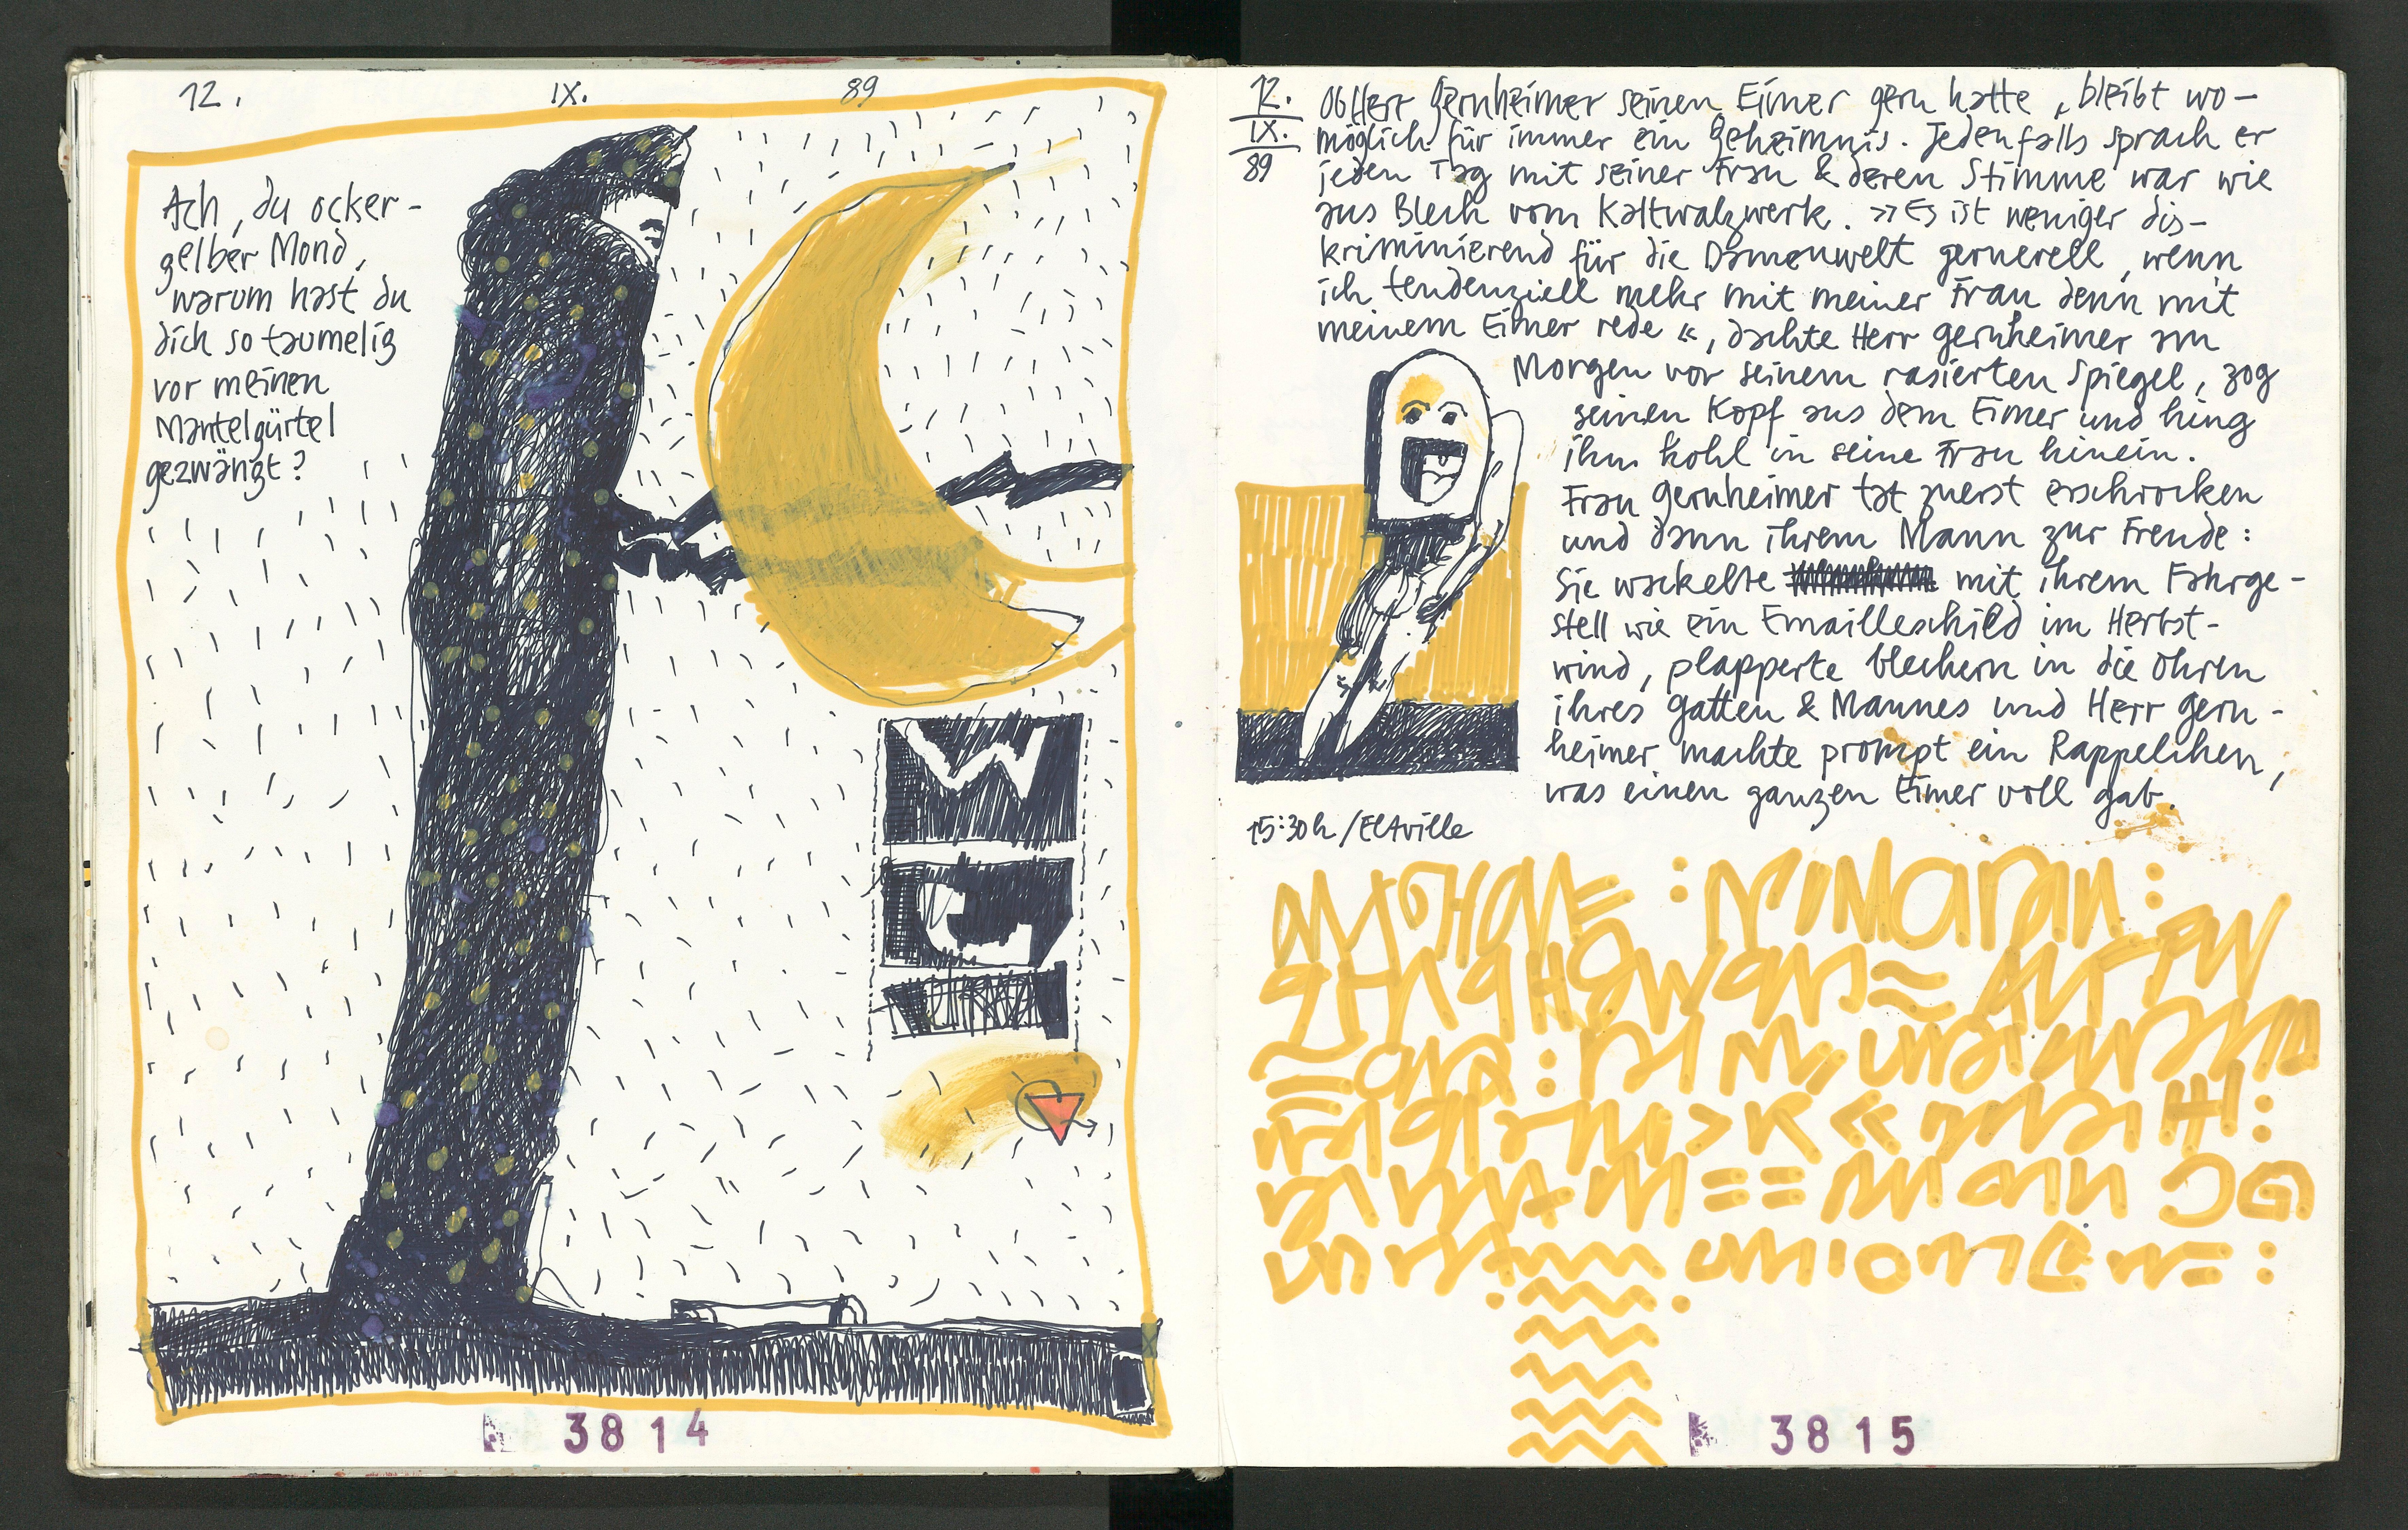 12. IX. 89
Ach, du ocker-
gelber Mond,
warum hast du
dich so taumelig
vor meinen
Mantelgürtel
gezwängt?
3814
12.
IX.
89
Ob Herr Gernheimer seinen Eimer gern hatte, bleibt wo-
möglich für immer ein Geheimnis. Jedenfalls sprach er
jeden Tag mit seiner Frau & deren Stimme war wie
aus Blech vom Kaltwalzwerk. »Es ist weniger dis-
kriminierend für die Damenwelt gernerell, wenn
ich tendenziell mehr mit meiner Frau denn mit
meinem Eimer rede«, dachte Herr Gernheimer am
Morgen vor seinem rasierten Spiegel, zog
seinen Kopf aus dem Eimer und hing
ihn hohl in seine Frau hinein.
Frau Gernheimer tat zuerst erschrocken
und dann ihrem Mann zur Freude:
Sie wackelte mit ihrem Fahrge-
stell wie ein Emailleschild im Herbst-
wind, plapperte blechern in die Ohren
ihres Gatten & Mannes und Herr Gern-
heimer machte prompt ein Rappelchen,
was einen ganzen Eimer voll gab.
15:30h/Eltville
3815